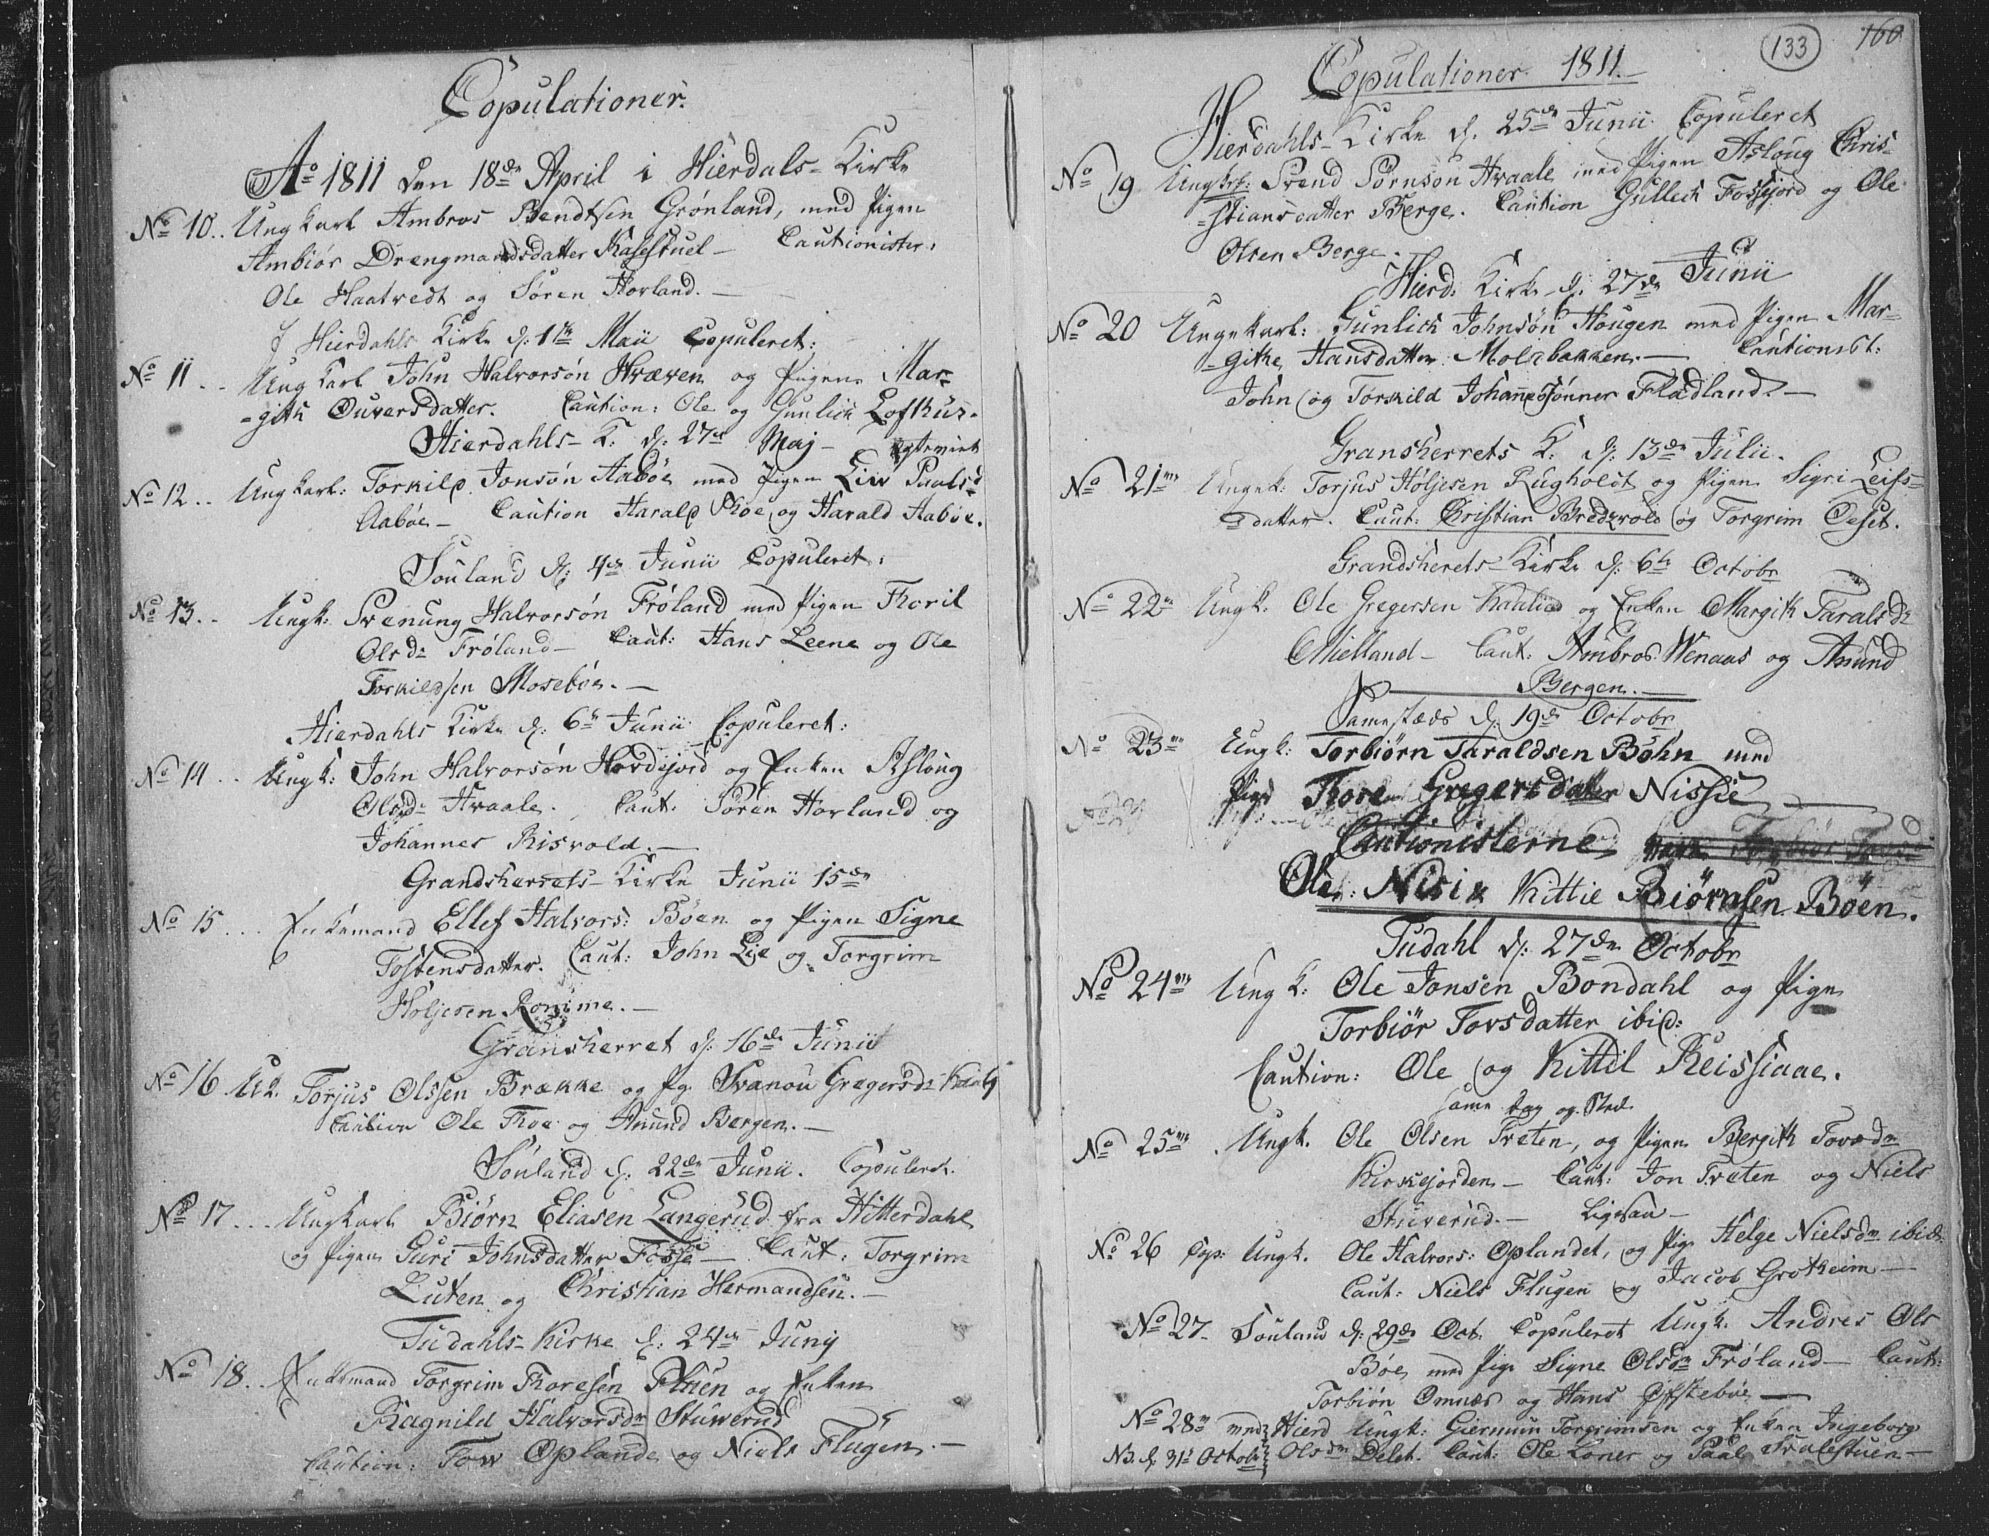 Copulationer.
Ao 1811 den 18de April i Hierdals-Kirke
No 10.. Ungkarl Ambros Bendtsen Grønland, med Pigen
Ambiør Drengmandsdatter Kasestuel - Cautionister:
Ole Haatvedt og Søren Horland. -
I Hierdahls Kirke d: 1te Maii Copuleret:
No 11.. Ungkarl John Halvorsøn Hræven og Pigen Mar-
-gith Ouversdatter. Caution: Ole og Gunlich Lofthus.
Hierdahls-K. d: 27de Maj -
No 12.. Ungkarl: Torkild Jonsøn Aabøe med Pigen Liv Paalsd
Aabøe - Caution Harald Moe og Harald Aabøe.
Souland d: 4de Junii Copuleret:
No 13.. Ungk: Svenung Halvorsøn Frøland med Pigen Thoril
Olsdr Frøland - Caut: Hans Leene og Ole
Torkildsen Mosebøe. -
Hierdahls Kirke d: 6te Junii Copuleret:
No 14.. Ungk: John Halvorsøn Hovdejord og Enken Asloug
Olsdr Hvaale. Caut: Søren Horland og
Johannes Risvold. -
Grandsherrets-Kirke Junii 15de
No 15... Enkemand Ellef Halvors: Bøen og Pigen Signe
Tostensdatter. Caut: John Lie og Torgrim
Holjesen Romme. -
Gransherret d: 16de Junii
No 16 U.k. Torjus Olssen Brække og Pg. Svanou Gregersdr
Caution Ole Thoe og Amund Bergen. -
Souland d. 22de Junii. Copuleret.
No 17... Ungkarl Biørn Eliasen Langerud fra Hitterdahl
og Pigen Guri Johnsdatter Fosse - Caut: Torgrim
Luten og Christian Hermandsen. -
Tudahls-Kirke d. 24de Junij
No 18.. Enkemand Torgrim Thoresen Pluen og Enken
Ragnild Halvorsdr Stuverud
Caution: Tow Oplande og Niels Flugen. -
133 160
Copulationer 1811. -
Hierdahls-Kirke d. 25de Junii Copuleret
No 19 Ungkrl: Svend Sørnsøn Hvaale med Pigen Asloug Chris-
-stiansdatter Berge. Caution Gullech Fossjord og Ole
Olsen Berge.
Hierd: Kirke d: 27de Junii
No 20 Ungekarl: Gunlich Johnsøn Hougen med Pigen Mar-
-githe Hansdatter Molabakken. - Cautionist:
John og Torkild Johannesønner Fladland. -
Gransherrets K. d: 13de Julii.
No 21 Ungek: Torjus Holjesen Rugholdt og Pigen Sigri Leifs-
-datter. Caut: Christian Bredvold og Torgrim Oeset.
Grandsherets-Kirke d: 6te Octobr
No 22 Ungk. Ole Gregersen og Enken Margith Taraldsdr
Mielland - Caut: Ambros Wenaas og Amund
Bergen. -
Samestæds d. 19de Octobr
No 23 Ungk: Torbiørn Taraldsen Bøhn med
Pige Thore Gregersdatter Nissie
Cautionisterne
Ole Nisie Kittil Biørnsen Bøen.
Tudahl d: 27de Octobr
No 24 Ungk: Ole Jonsen Bondahl og Pige
Torbiør Tovsdatter ibid:
Caution: Ole og Kittil Reissiaae.
same dag og Sted
No 25. Ungk. Ole Olsen Treten, og Pigen Bergith Tovsdr
Kirkejorden - Caut: Jon Treten og Niels
Stuverud. - Ligesaa -
No 26 Cop: Ungk. Ole Halvors: Oplandet, og Pige Helge Nielsdr ibid.
Caut: Niels Flugen og Jacob Grotheim -
No 27. Souland d: 29de Oct. Copuleret Ungk. Andres Ols
Bøe med Pige Signe Olsdr Frøland - Caut:
Torbiøn Omnæs og Hans Øfstebøe -
No 28 Hierd Ungk: Giermun Torgrimsen og Enken Ingeborg
N3. d. 31te Octobr Olsdr Delet. Caut: Ole Loner og Paal